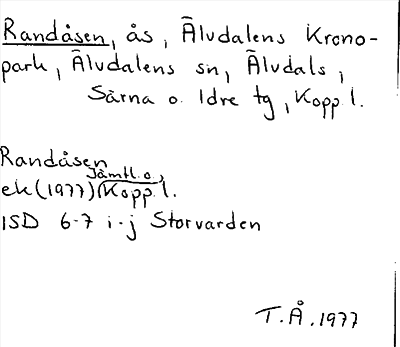 Randåsen, ås, Älvdalens Krono-
park, Älvdalens sn, Älvdals,
Särna o. Idre tg, Kopp.l.
Randåsen
Jämtl. o.
ek (1977) Kopp.l.
ISD 6-7 i-j Storvarden
T.Å. 1977